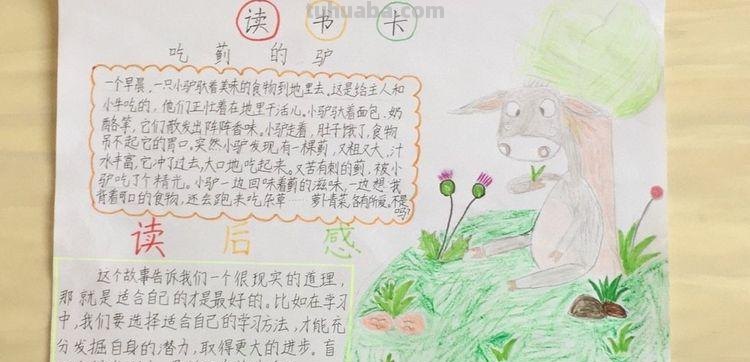 tuhuaba.com
读书卡
吃蓟的驴
一个早晨,一只小驴驮着美味的食物到地里去,这是给主人和
小牛吃的,他们正忙着在地里干活儿。小驴驮着面包、奶
酪等,它们散发出阵阵香味。小驴走着,肚子饿了,食物
吊不起它的胃口,突然小驴发现,有一棵蓟,又粗又大,汁
水丰富,它冲了过去,大口地吃起来。又苦有刺的蓟,被小
驴吃了个精光。小驴一边回味着蓟的滋味,一边想:我
背着可口的食物,还去跑来吃杂草……萝卜青菜,各有所爱,不是
吗?
读后感
这个故事告诉我们一个很现实的道理,
那就是适合自己的才是最好的。比如在学习
中,我们要选择适合自己的学习方法,才能充
分发掘自身的潜力,取得更大的进步。盲